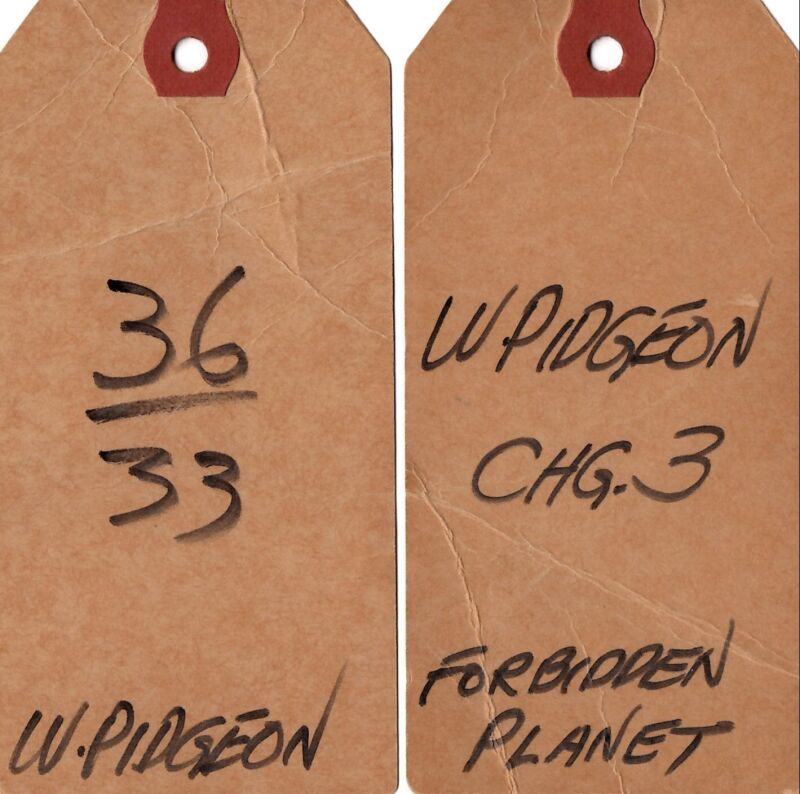 36
33
W.PIDGEON
W.PIDGEON
CHG.3
FORBIDDEN
PLANET